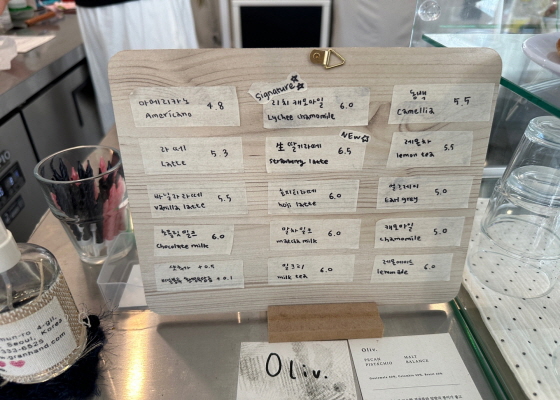 아메리카노 4.8
Americano
라떼 5.3
Latte
바닐라라떼 5.5
Vanilla latte
초콜릿밀크 6.0
Chocolate milk
+ 0.5
+ 0.1
Signature
리치캐모마일 6.0
Lychee chamomile
NEW
生딸기라떼 6.5
Strawberry latte
호지라떼 6.0
hoji latte
말차밀크 6.0
matcha milk
밀크티 6.0
milk tea
동백 5.5
Camellia
레몬차 5.5
lemon tea
얼그레이 5.0
Earl grey
캐모마일 5.0
chamomile
레몬에이드 6.0
lemonade
4-gil,
Seoul, Korea
Oliv.
Oliv.
PECAN MALT
PISTACHIO BALANCE